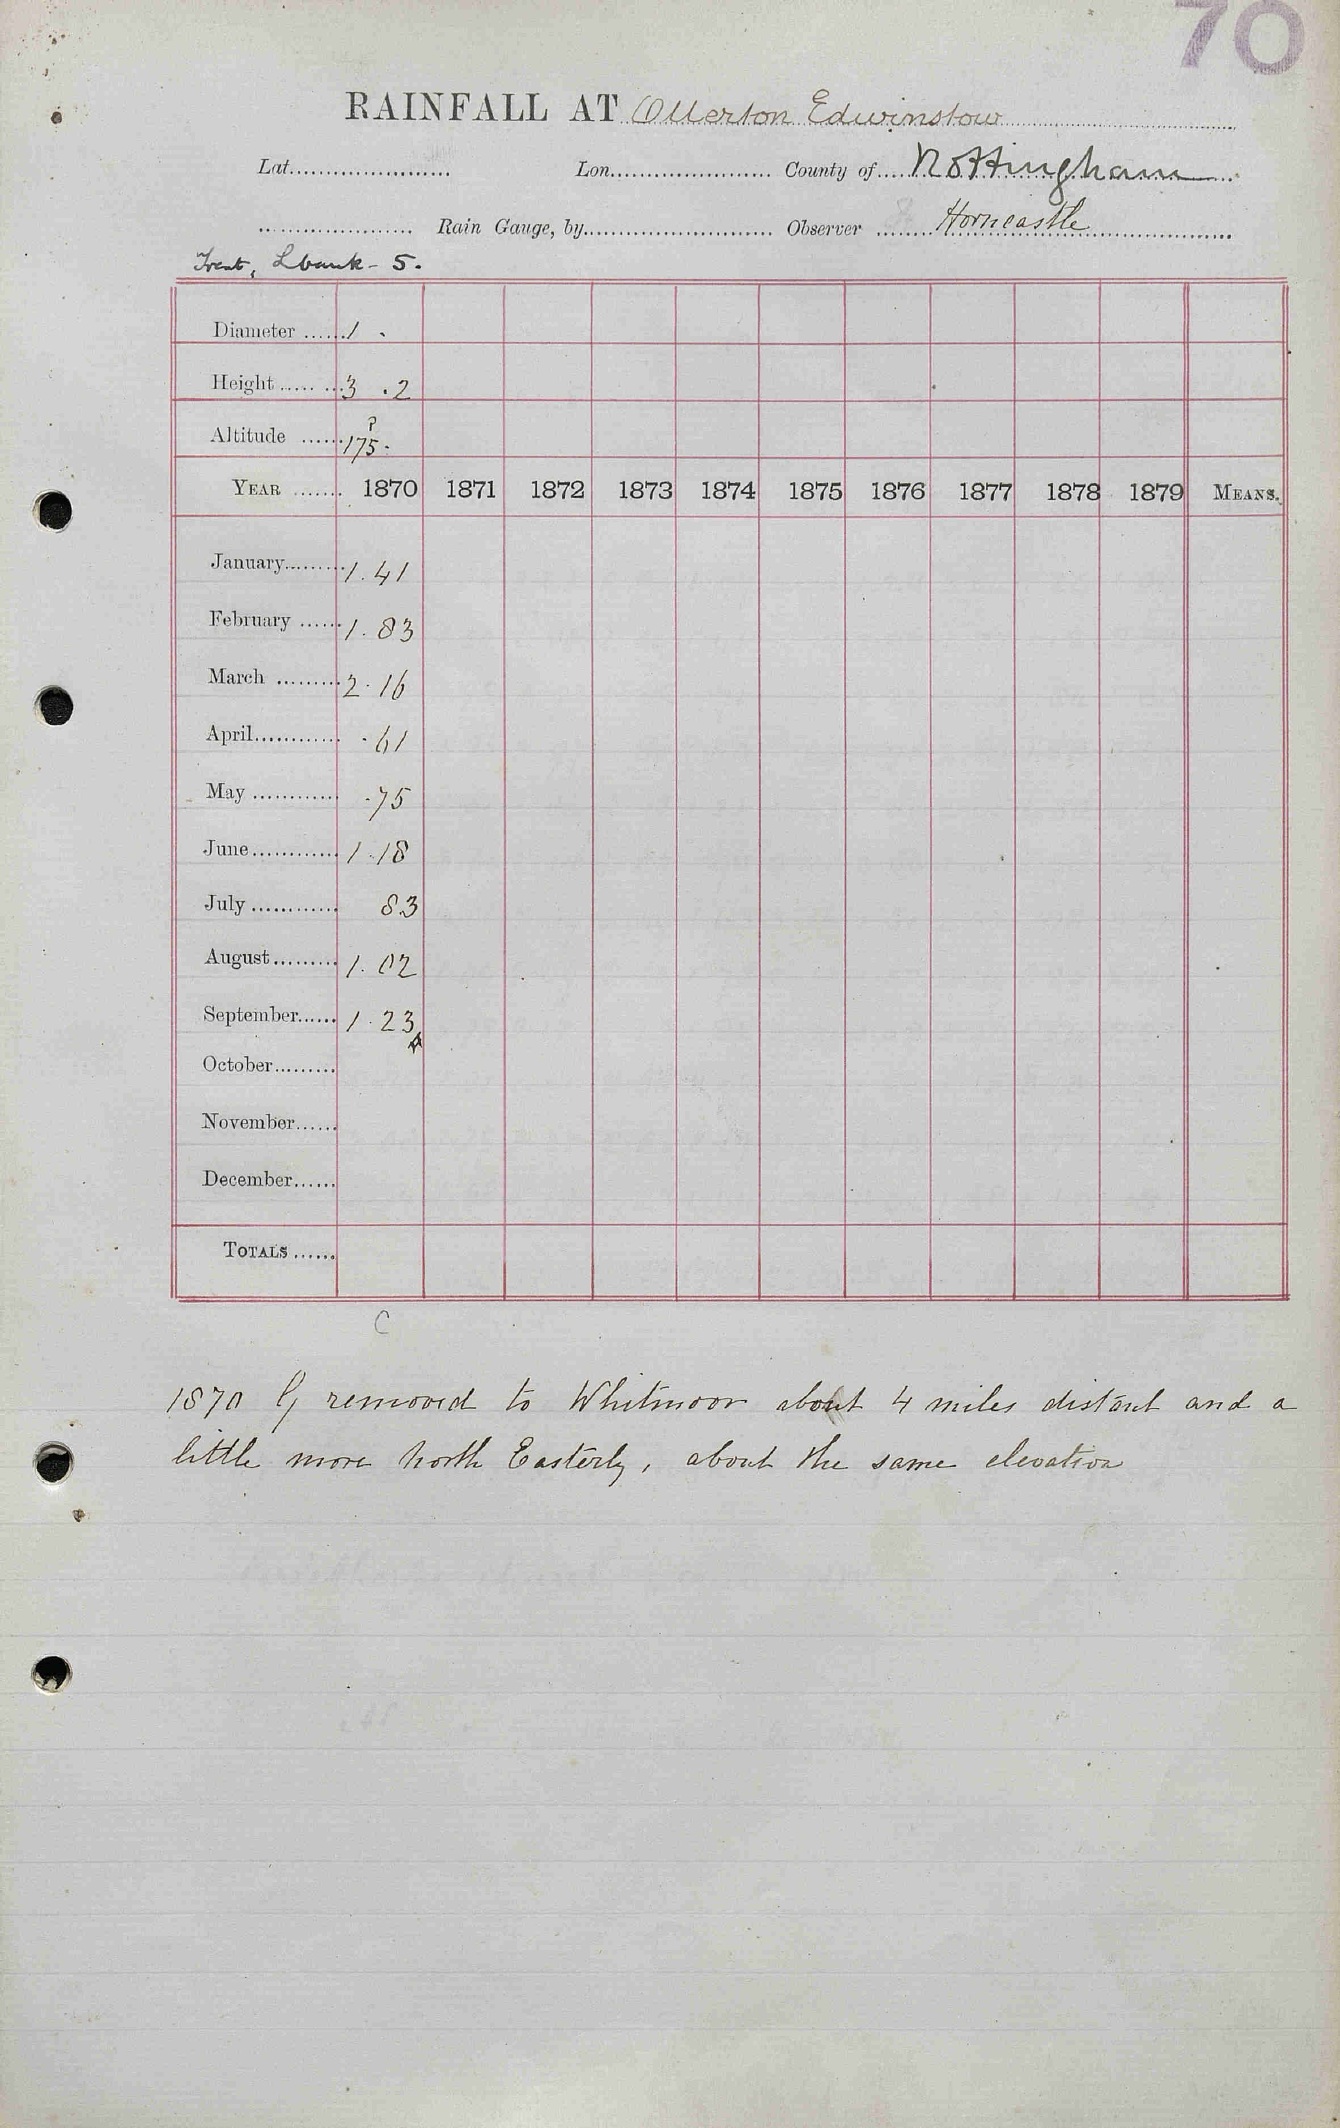 70
RAINFALL AT Ollerton Edwinstow
Lat...................... Lon...................... County of....Nottingham
..................... Rain Gauge, by......................... Observer ........Horncastle
Trent, L bank - 5.
Diameter ...... 1 .
Height ..... ... 3 .2
Altitude ...... 175. ?
YEAR ....... 1870 1871 1872 1873 1874 1875 1876 1877 1878 1879 MEANS.
January......... 1.41
February ...... 1.83
March ......... 2.16
April............ .61
May ............ .75
June............ 1.18
July ............ 83
August......... 1.02
September...... 1.23
October.........
November......
December......
TOTALS ......
C
1870 G removed to Whitmoor about 4 miles distant and a
little more north Easterly, about the same elevation